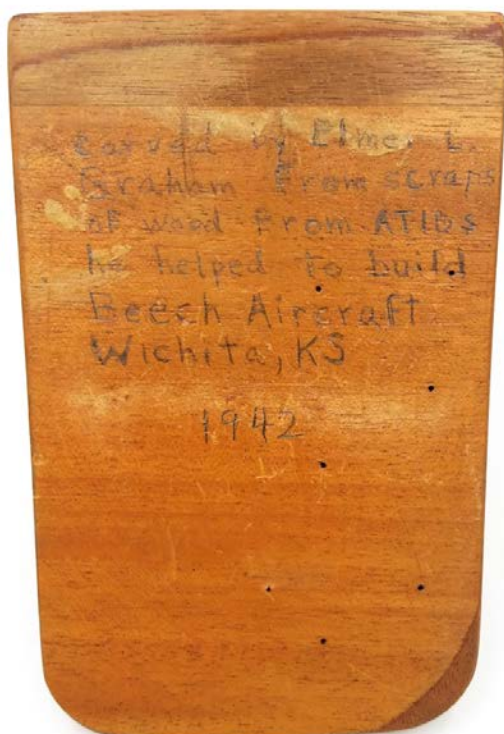 Carved by Elmer L.
Graham from scraps
of wood from AT10s
he helped to build
Beech Aircraft
Wichita, KS
1942